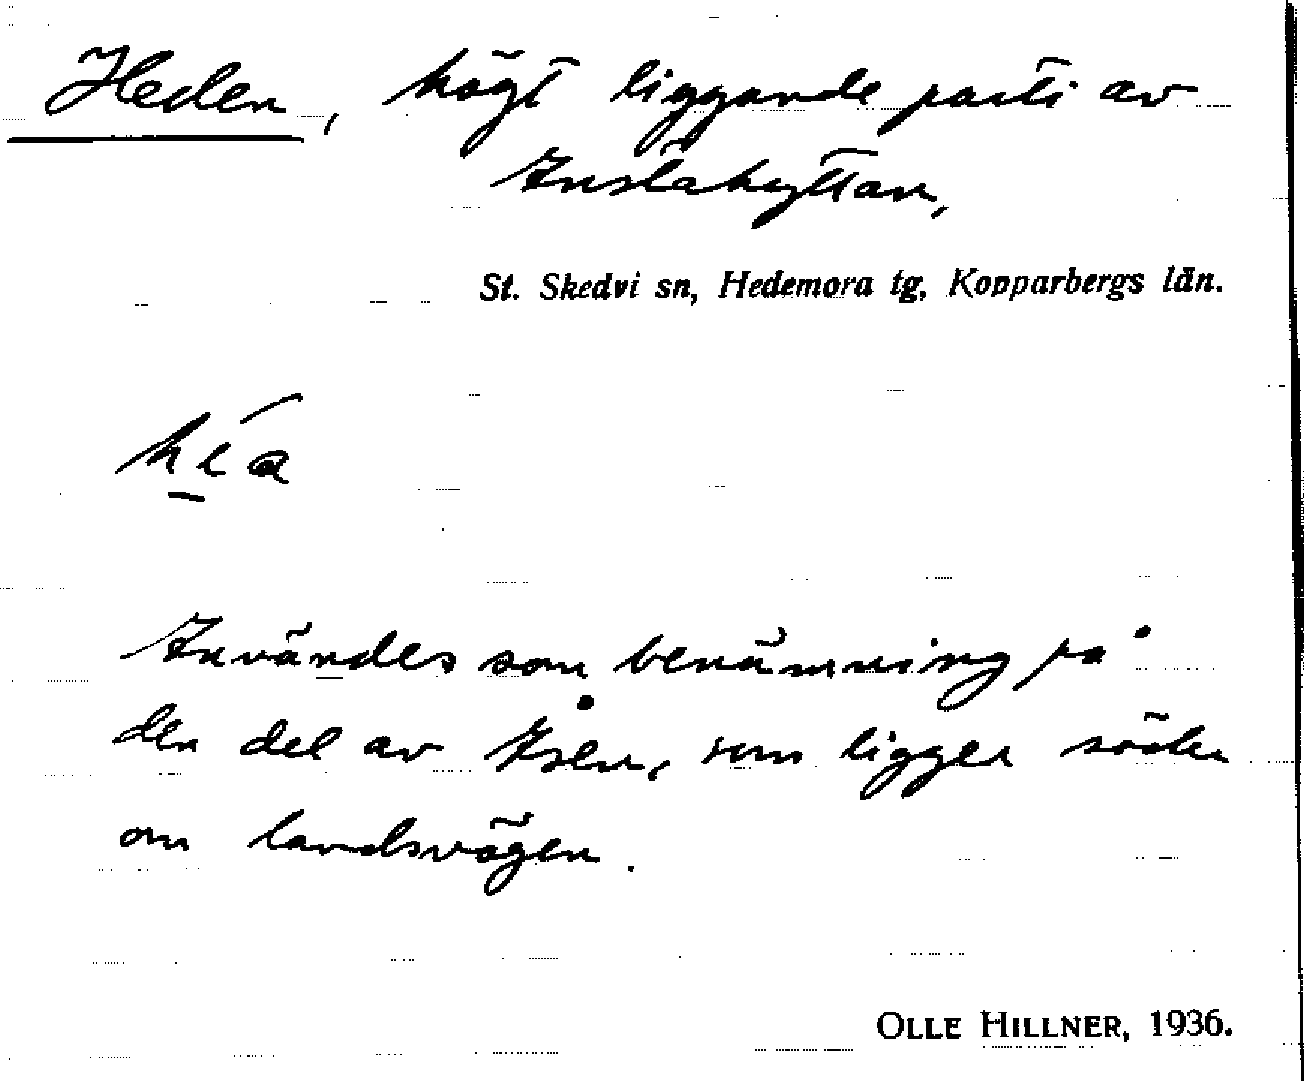 Heden, högt liggande parti av
Inslahyttan,
St. Skedvi sn, Hedemora tg, Kopparbergs län.
Användes som benämning på
den del av som ligger söder
om landsvägen.
OLLE HILLNER, 1936.